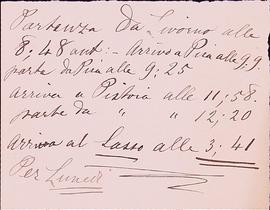 Partenza Da Livorno alle
8.48 ant: - Arrivo a Pisa alle 9.9
parte da Pisa alle 9,25
arriva a Pistoia alle 11,58.
parte da " " 12,20
arriva al Sasso alle 3,41
Per Lunedi